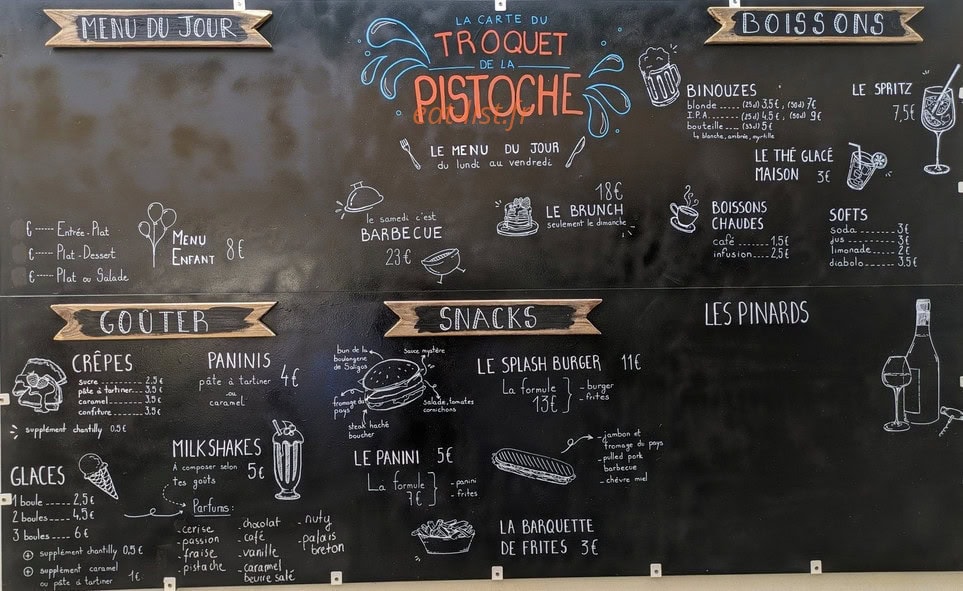 MENU DU JOUR
€ ----- Entrée-Plat
€ ----- Plat-Dessert
€ ----- Plat ou Salade
MENU
ENFANT 8€
LA CARTE DU
TROQUET
DE LA
PISTOCHE
eatalist.fr
LE MENU DU JOUR
du lundi au vendredi
le samedi c'est
BARBECUE
23€
18€
LE BRUNCH
seulement le dimanche
BOISSONS
BINOUZES
blonde ..... (25cl) 3.5€, (50cl) 7€
I.P.A. ....... (25cl) 4.5€, (50cl) 9€
bouteille .... (33cl) 5€
la blanche, ambrée, myrtille
LE SPRITZ
7,5€
LE THÉ GLACÉ
MAISON 3€
BOISSONS
CHAUDES
café ...... 1.5€
infusion ..... 2,5€
SOFTS
soda ........ 3€
jus ........ 3€
limonade ..... 2€
diabolo ..... 3.5€
GOÛTER
CRÊPES
sucre .......... 2.5€
pâte à tartiner .... 3.5€
caramel .......... 3.5€
confiture ........ 3.5€
supplément chantilly 0.5€
PANINIS
pâte à tartiner
ou
caramel
4€
GLACES
1 boule ..... 2,5€
2 boules ..... 4,5€
3 boules ..... 6€
+ supplément chantilly 0,5€
+ supplément caramel
ou pâte à tartiner 1€
MILKSHAKES
À composer selon
tes goûts
5€
Parfums :
- cerise
- passion
- fraise
- pistache
- chocolat
- café
- vanille
- caramel
beurre salé
- nuty
- palais
breton
SNACKS
bun de la
boulangerie
de Saligos
sauce mystère
fromage du
pays
salade, tomates
cornichons
steak haché
boucher
LE SPLASH BURGER 11€
La formule
13€
- burger
- frites
LE PANINI 5€
La formule
7€
- panini
- frites
- jambon et
fromage du pays
- pulled pork
barbecue
- chèvre miel
LA BARQUETTE
DE FRITES 3€
LES PINARDS